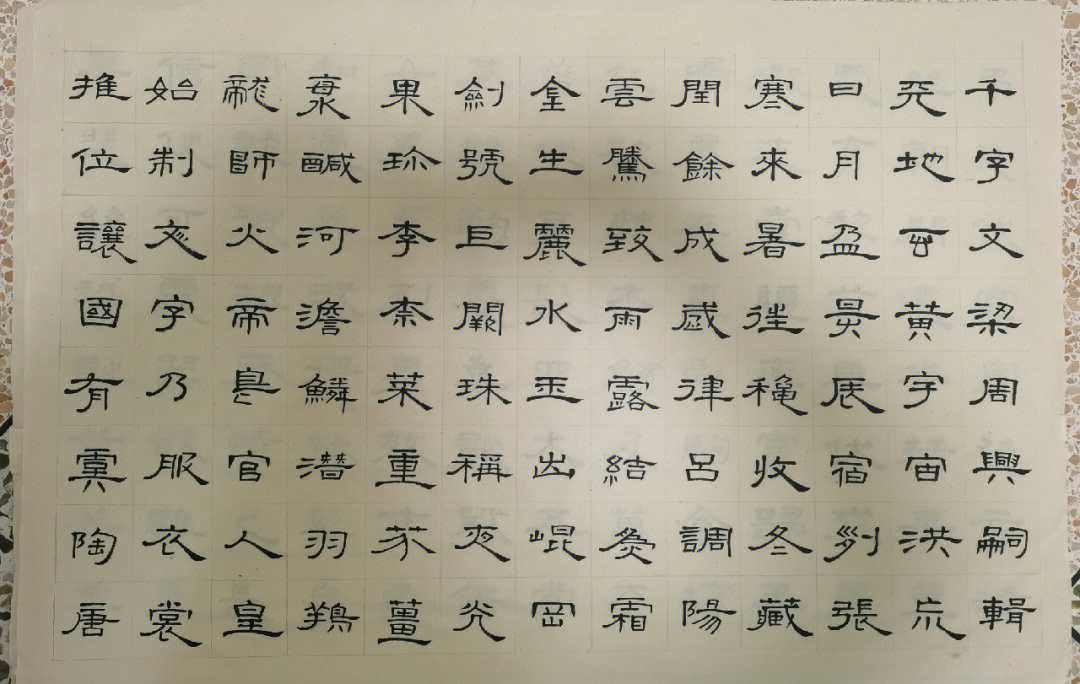 千字文梁周興嗣輯
天地玄黃宇宙洪荒
日月盈昃辰宿列張
寒來暑往穐收冬藏
閏餘成歲律呂調陽
雲騰致雨露結為霜
金生麗水玉出崐岡
劍號巨闕珠稱夜光
果珍李柰菜重芥薑
海鹹河澹鱗潛羽翔
龍師火帝鳥官人皇
始制文字乃服衣裳
推位讓國有虞陶唐